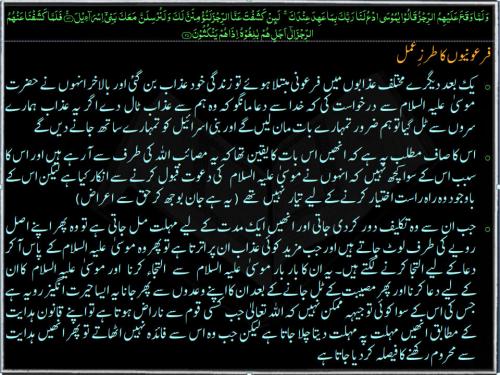 وَلَمَّا وَقَعَ عَلَيْهِمُ الرِّجْزُ قَالُوْا يٰمُوْسَى ادْعُ لَنَا رَبَّكَ بِمَا عَهِدَ عِنْدَكَ ۚ لَىِٕنْ كَشَفْتَ عَنَّا الرِّجْزَ لَنُؤْمِنَنَّ لَكَ وَلَنُرْسِلَنَّ مَعَكَ بَنِيْٓ اِسْرَاۗءِيْلَ ۚ فَلَمَّا كَشَفْنَا عَنْهُمُ
الرِّجْزَ اِلٰٓي اَجَلٍ هُمْ بٰلِغُوْهُ اِذَا هُمْ يَنْكُثُوْنَ
فرعونیوں کا طرزِ عمل
یکے بعد دیگرے مختلف عذابوں میں فرعونی مبتلا ہوئے تو زندگی خود عذاب بن گئی اور بالآخر انھوں نے حضرت
موسیٰ علیہ السلام سے درخواست کی کہ خدا سے دعا مانگو کہ وہ ہم سے عذاب ٹال دے اگر یہ عذاب ہمارے
سروں سے ٹل گیا تو ہم ضرور تمہارے بات مان لیں گے اور بنی اسرائیل کو تمہارے ساتھ جانے دیں گے
اس کا صاف مطلب یہ ہے کہ انھیں اس بات کا یقین تھا کہ یہ مصائب اللہ کی طرف سے آ رہے ہیں اور اس کا
سبب اس کے سوا کچھ نہیں کہ انھوں نے موسیٰ علیہ السلام کی دعوت قبول کرنے سے انکار کیا ہے لیکن اس کے
باوجود وہ راہ راست اختیار کرنے کے لیے تیار نہیں تھے (یہ ہے جان بوجھ کر حق سے اعراض)
جب ان سے وہ تکلیف دور کر دی جاتی اور انھیں ایک مدت کے لیے مہلت مل جاتی ہے تو وہ پھر اپنے اصل
رویے کی طرف لوٹ جاتے ہیں اور جب مزید کوئی عذاب ان پر اترتا ہے تو پھر وہ موسیٰ علیہ السلام کے پاس آ کر
دعا کے لیے التجا کرنے لگتے ہیں۔ یہ ان کا بار بار موسیٰ علیہ السلام سے التجاء کرنا اور موسیٰ علیہ السلام کا ان
کے لیے دعا کرنا اور پھر مصیبت کے ٹل جانے کے بعد ان کا اپنے وعدوں سے پھر جانا یہ ایسا حیرت انگیز رویہ ہے
جس کی اس کے سوا کوئی توجیہہ ممکن نہیں کہ اللہ تعالیٰ جب کسی قوم سے ناراض ہوتا ہے تو اپنے قانون ہدایت
کے مطابق انھیں مہلت پہ مہلت دیتا چلا جاتا ہے لیکن جب وہ اس سے فائدہ نہیں اٹھاتے تو پھر انھیں ہدایت
سے محروم رکھنے کا فیصلہ کر دیا جاتا ہے